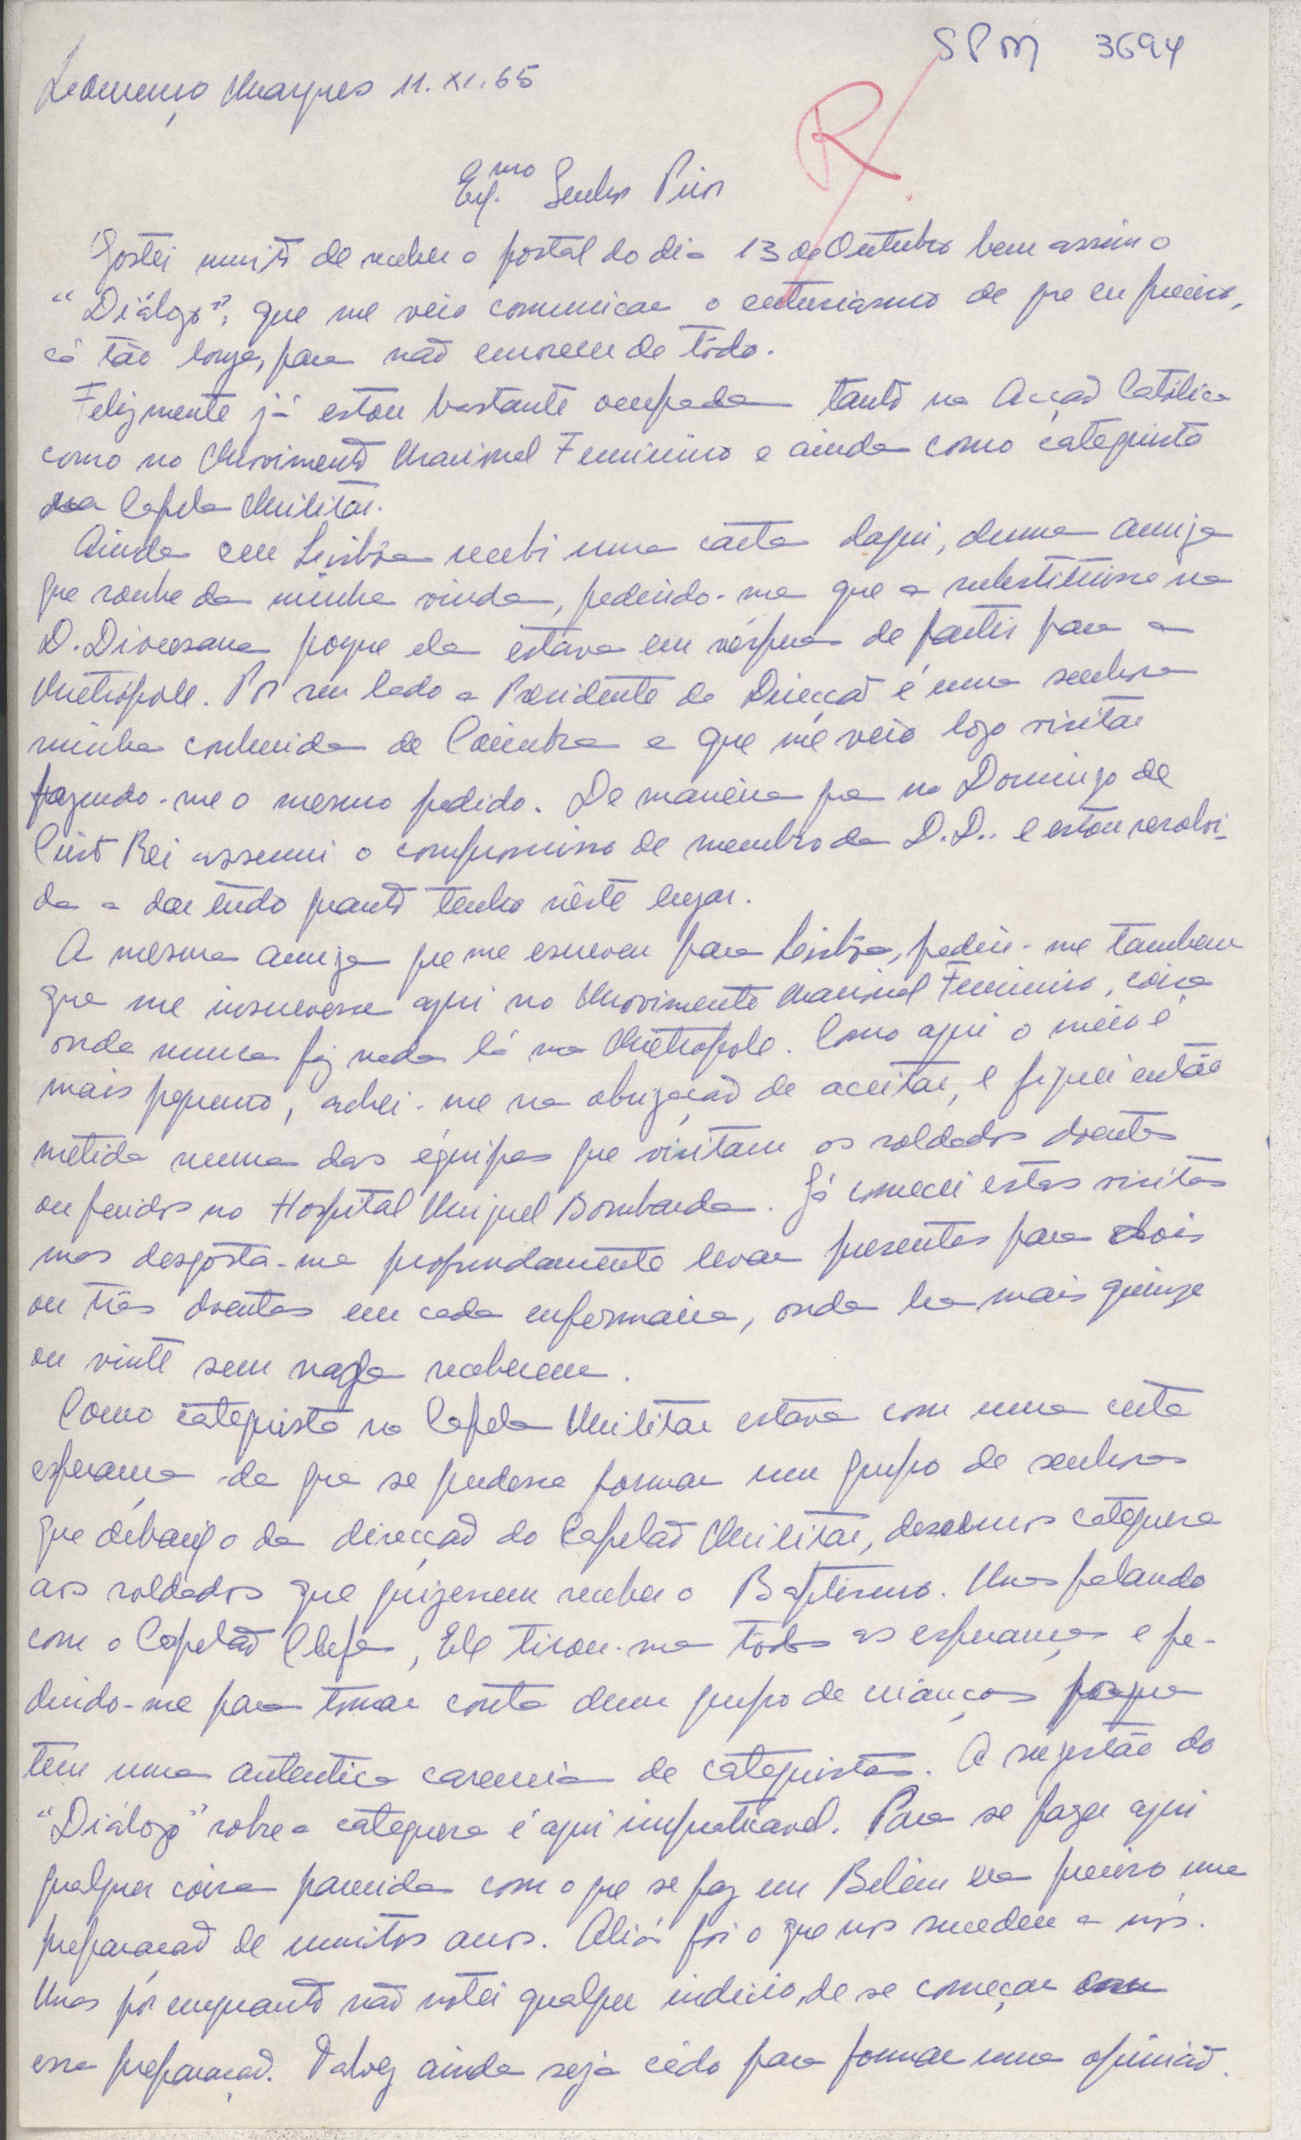 SPM 3694
Lourenço Marques 11.XI.65
R
Exmo. Senhor Prior
Gostei muito de receber o postal do dia 13 de Outubro bem assim o
"Diálogo", que me veio comunicar o entusiasmo de que eu preciso,
cá tão longe, para não emorecer de tôdo.
Felizmente já estou bastante ocupada tanto na Acção Católica
como no Movimento Nacional Feminino e ainda como catequista
na Capela Militar.
Ainda em Lisbôa recebi uma carta daqui, duma amiga
que soube da minha vinda, pedindo-me que a substituisse na
D. Diocesana porque ela estava em vésperas de partir para a
Metrópole. Por seu lado a Presidente da Direcção é uma senhora
minha conhecida de Coimbra e que me veio logo visitar
fazendo-me o mesmo pedido. De maneira que no Domingo de
Cristo Rei assumi o compromisso de membro da D.D.. e estou resolvi-
da a dar tudo quanto tenho nêste lugar.
A mesma amiga que me escreveu para Lisbôa, pediu-me tambem
que me inscrevesse aqui no Movimento Nacional Feminino, coisa
onde nunca fiz nada lá na Metropole. Como aqui o meio é
mais pequeno, achei-me na obrigação de aceitar, e fiquei então
metida numa das équipas que visitam os soldados doentes
ou feridos no Hospital Miguel Bombarda. Já comecei estas visitas
mas desgósta-me profundamente levar presentes para dois
ou três doentes em cada enfermaria, onde ha mais quinze
ou vinte sem nada receberem.
Como catequista na Capela Militar estava com uma certa
esperança de que se pudesse formar um grupo de senhoras
que debaixo da direcção do Capelão Militar, désemos catequese
aos soldados que quizessem receber o Baptismo. Mas falando
com o Capelão Chefe, Ele tirou-me tôdas as esperanças e pe-
dindo-me para tomar conta dum grupo de crianças porque
tem uma autentica carencia de catequistas. A sugestão do
"Diálogo" sobre a catequese é aqui impraticavel. Para se fazer aqui
qualquer coisa parecida com o que se faz em Belém era preciso uma
preparação de muitos anos. Aliás foi o que nos sucedeu a nós.
Mas por enquanto não notei qualquer indicio de se começar com
essa preparação. Talvez ainda seja cêdo para formar uma opinião.